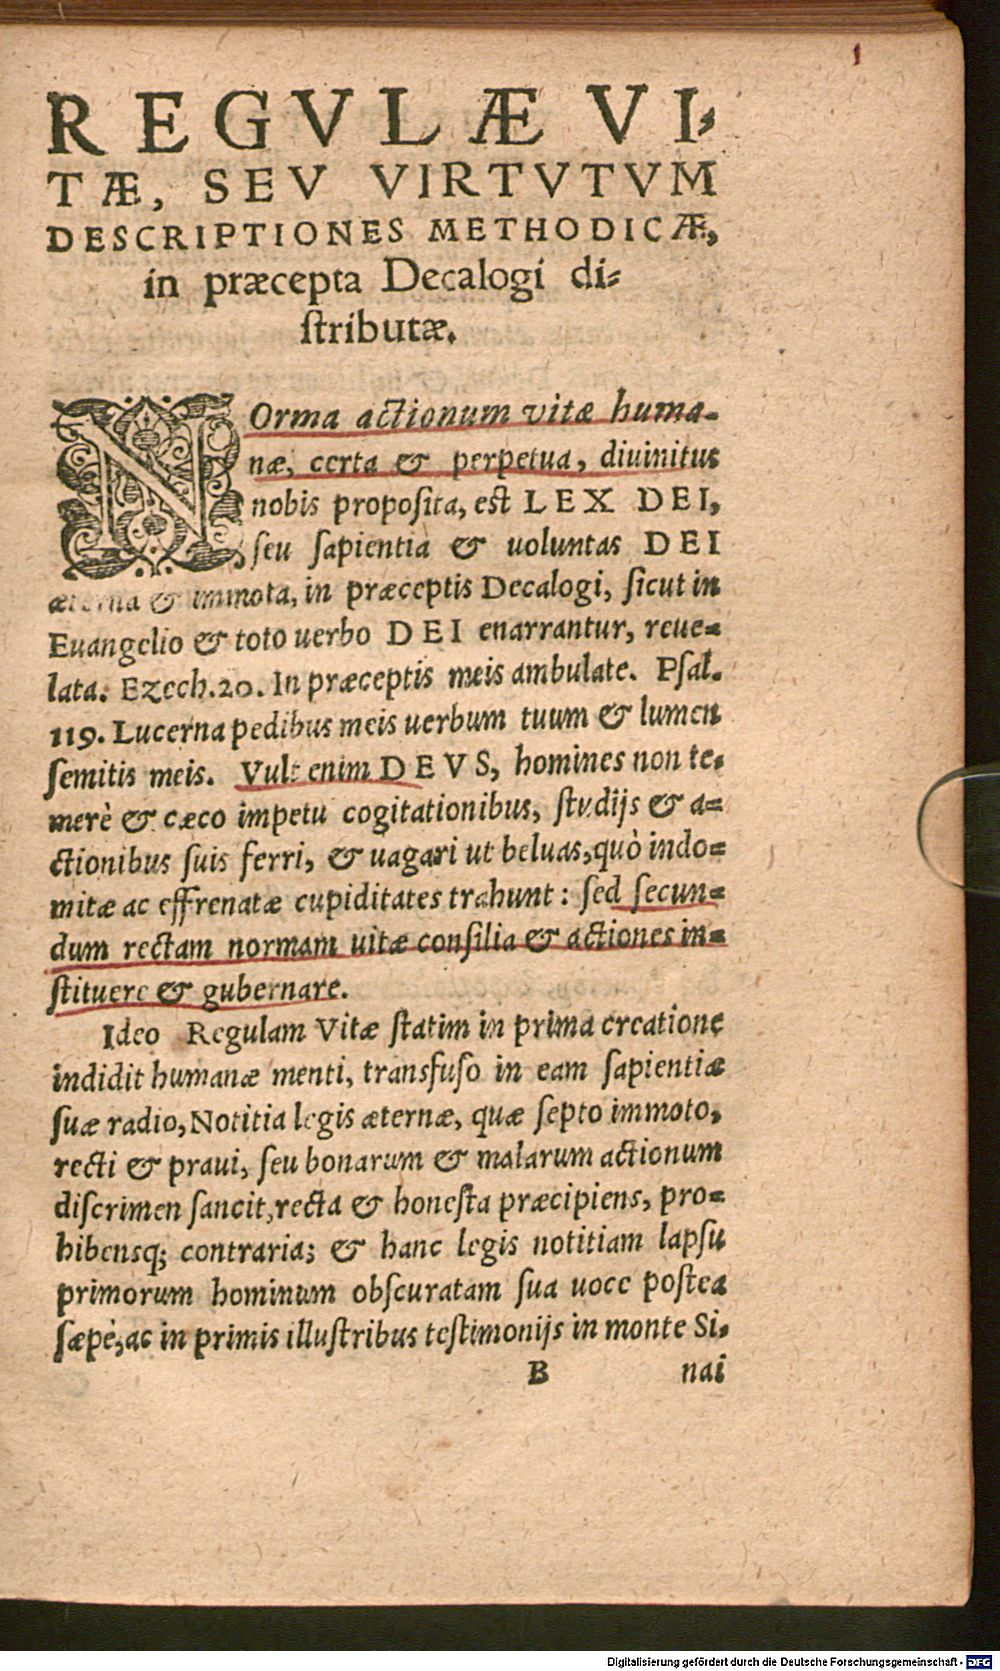 1
REGVLÆ VI-
TÆ, SEV VIRTVTVM
DESCRIPTIONES METHODICÆ,
in præcepta Decalogi di-
ſtributæ.
NOrma actionum vitæ huma-
næ, certa & perpetua, diuinitus
nobis propoſita, eſt LEX DEI,
ſeu ſapientia & uoluntas DEI
æterna & immota, in præceptis Decalogi, ſicut in
Euangelio & toto uerbo DEI enarrantur, reue-
lata. Ezech.20. In præceptis meis ambulate. Pſal.
119. Lucerna pedibus meis uerbum tuum & lumen
ſemitis meis. Vult enim DEVS, homines non te-
merè & cæco impetu cogitationibus, ſtudijs & a-
ctionibus ſuis ferri, & uagari ut beluas, quò indo-
mitæ ac effrenatæ cupiditates trahunt: ſed ſecun-
dum rectam normam uitæ conſilia & actiones in-
ſtituere & gubernare.
Ideo Regulam Vitæ ſtatim in prima creatione
indidit humanæ menti, transfuſo in eam ſapientiæ
ſuæ radio, Notitia legis æternæ, quæ ſepto immoto,
recti & praui, ſeu bonarum & malarum actionum
diſcrimen ſancit, recta & honeſta præcipiens, pro-
hibensq; contraria; & hanc legis notitiam lapſu
primorum hominum obſcuratam ſua uoce poſtea
ſæpè, ac in primis illuſtribus teſtimonijs in monte Si-
B nai
Digitalisierung gefördert durch die Deutsche Forschungsgemeinschaft - DFG